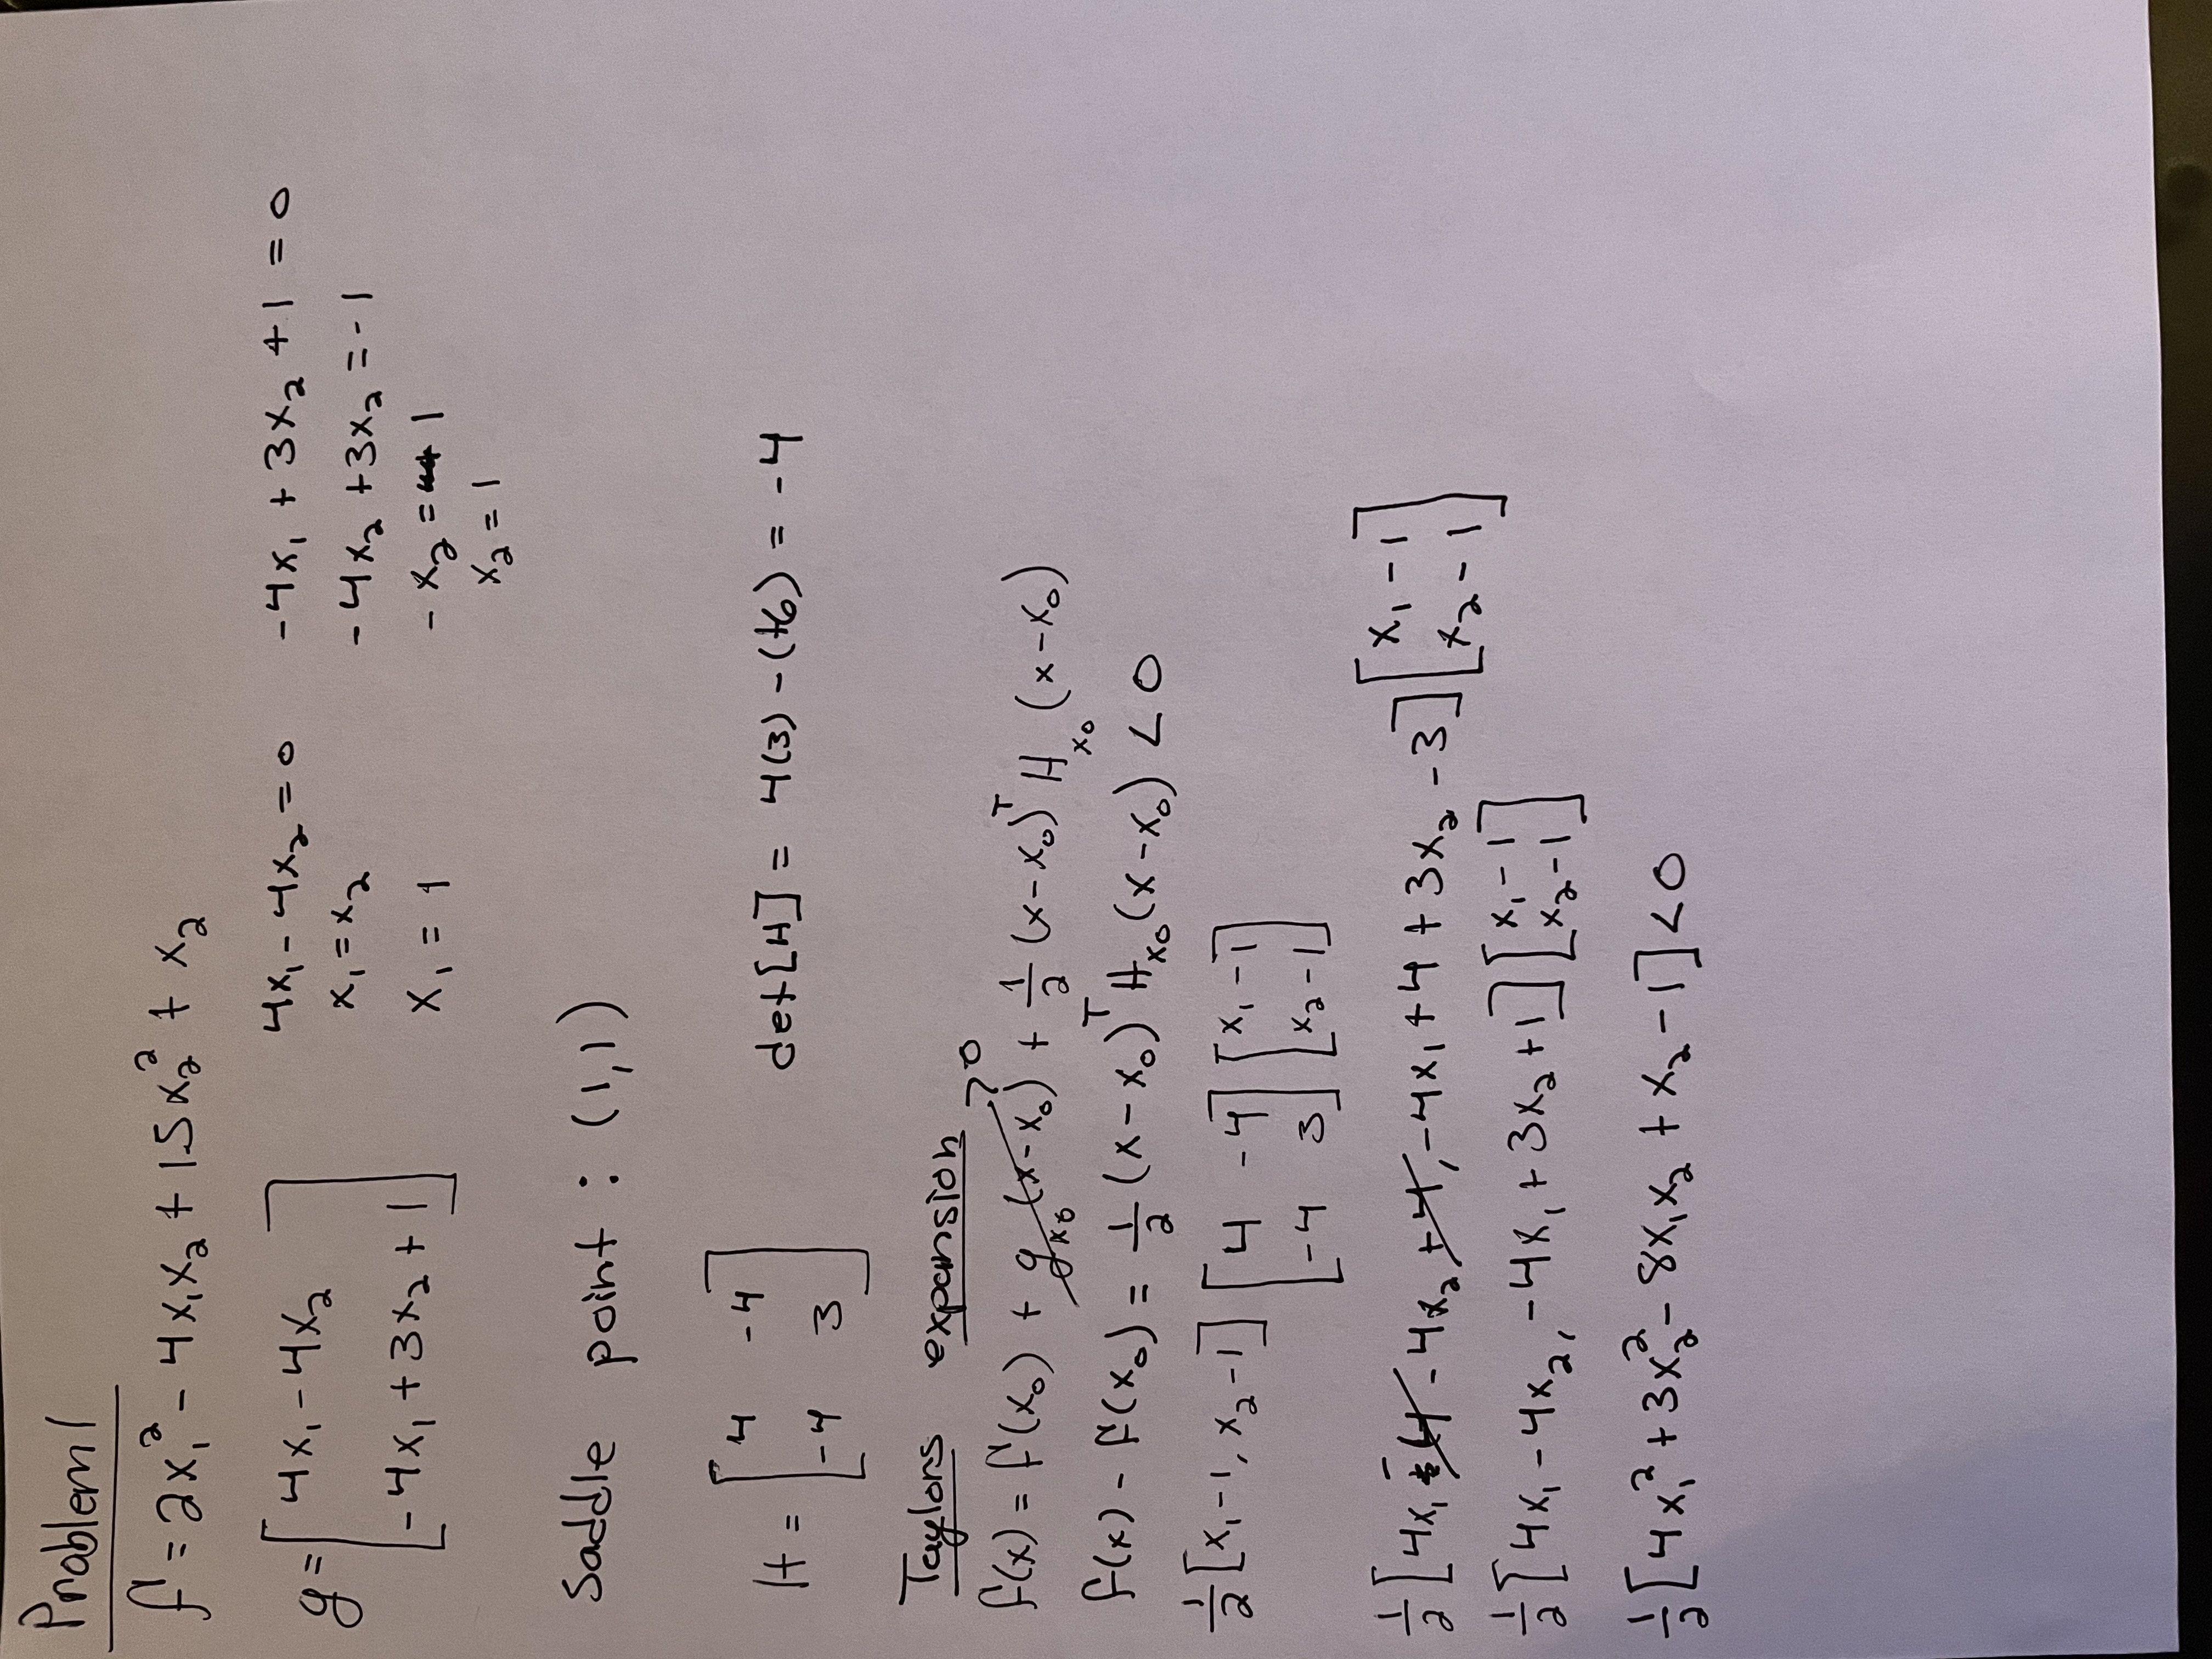 Problem 1
f = 2x₁² - 4x₁x₂ + 1.5x₂² + x₂
g = [4x₁ - 4x₂; -4x₁ + 3x₂ + 1]  4x₁ - 4x₂ = 0  -4x₁ + 3x₂ + 1 = 0
x₁ = x₂  -4x₂ + 3x₂ = -1
x₁ = 1  - x₂ = 1
x₂ = 1
Saddle point : (1,1)
H = [4 -4; -4 3]  det[H] = 4(3) - (16) = -4
Taylors expansion
f(x) = f(x₀) + g_x₀(x-x₀) → 0 + 1/2 (x-x₀)ᵀ H_x₀ (x-x₀)
f(x) - f(x₀) = 1/2 (x-x₀)ᵀ H_x₀ (x-x₀) < 0
1/2 [x₁-1, x₂-1] [4 -4; -4 3] [x₁-1; x₂-1]
1/2 [4x₁ - 4 - 4x₂ + 4, -4x₁ + 4 + 3x₂ - 3] [x₁-1; x₂-1]
1/2 [4x₁ - 4x₂, -4x₁ + 3x₂ + 1] [x₁-1; x₂-1]
1/2 [4x₁² + 3x₂² - 8x₁x₂ + x₂ - 1] < 0